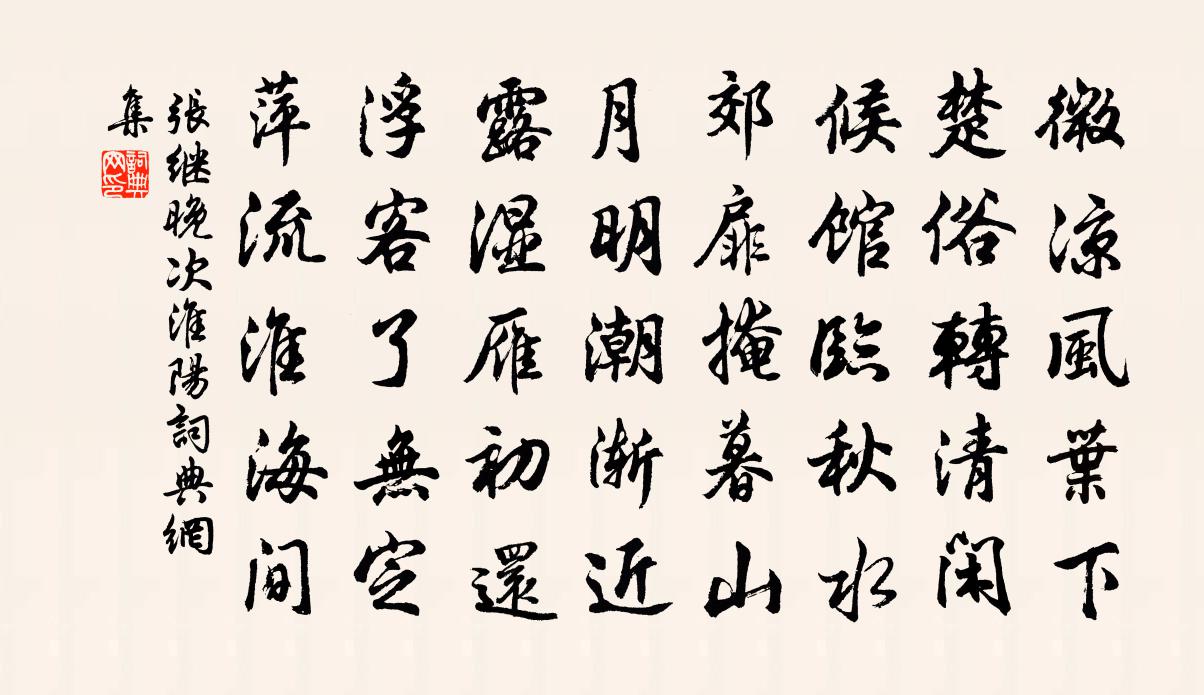 微涼風葉下
楚俗轉清閑
候館臨秋水
郊扉掩暮山
月明潮渐近
露湿雁初還
浮客了無定
萍流淮海间
張继晚次淮陽詞典網
集
詞典
网印